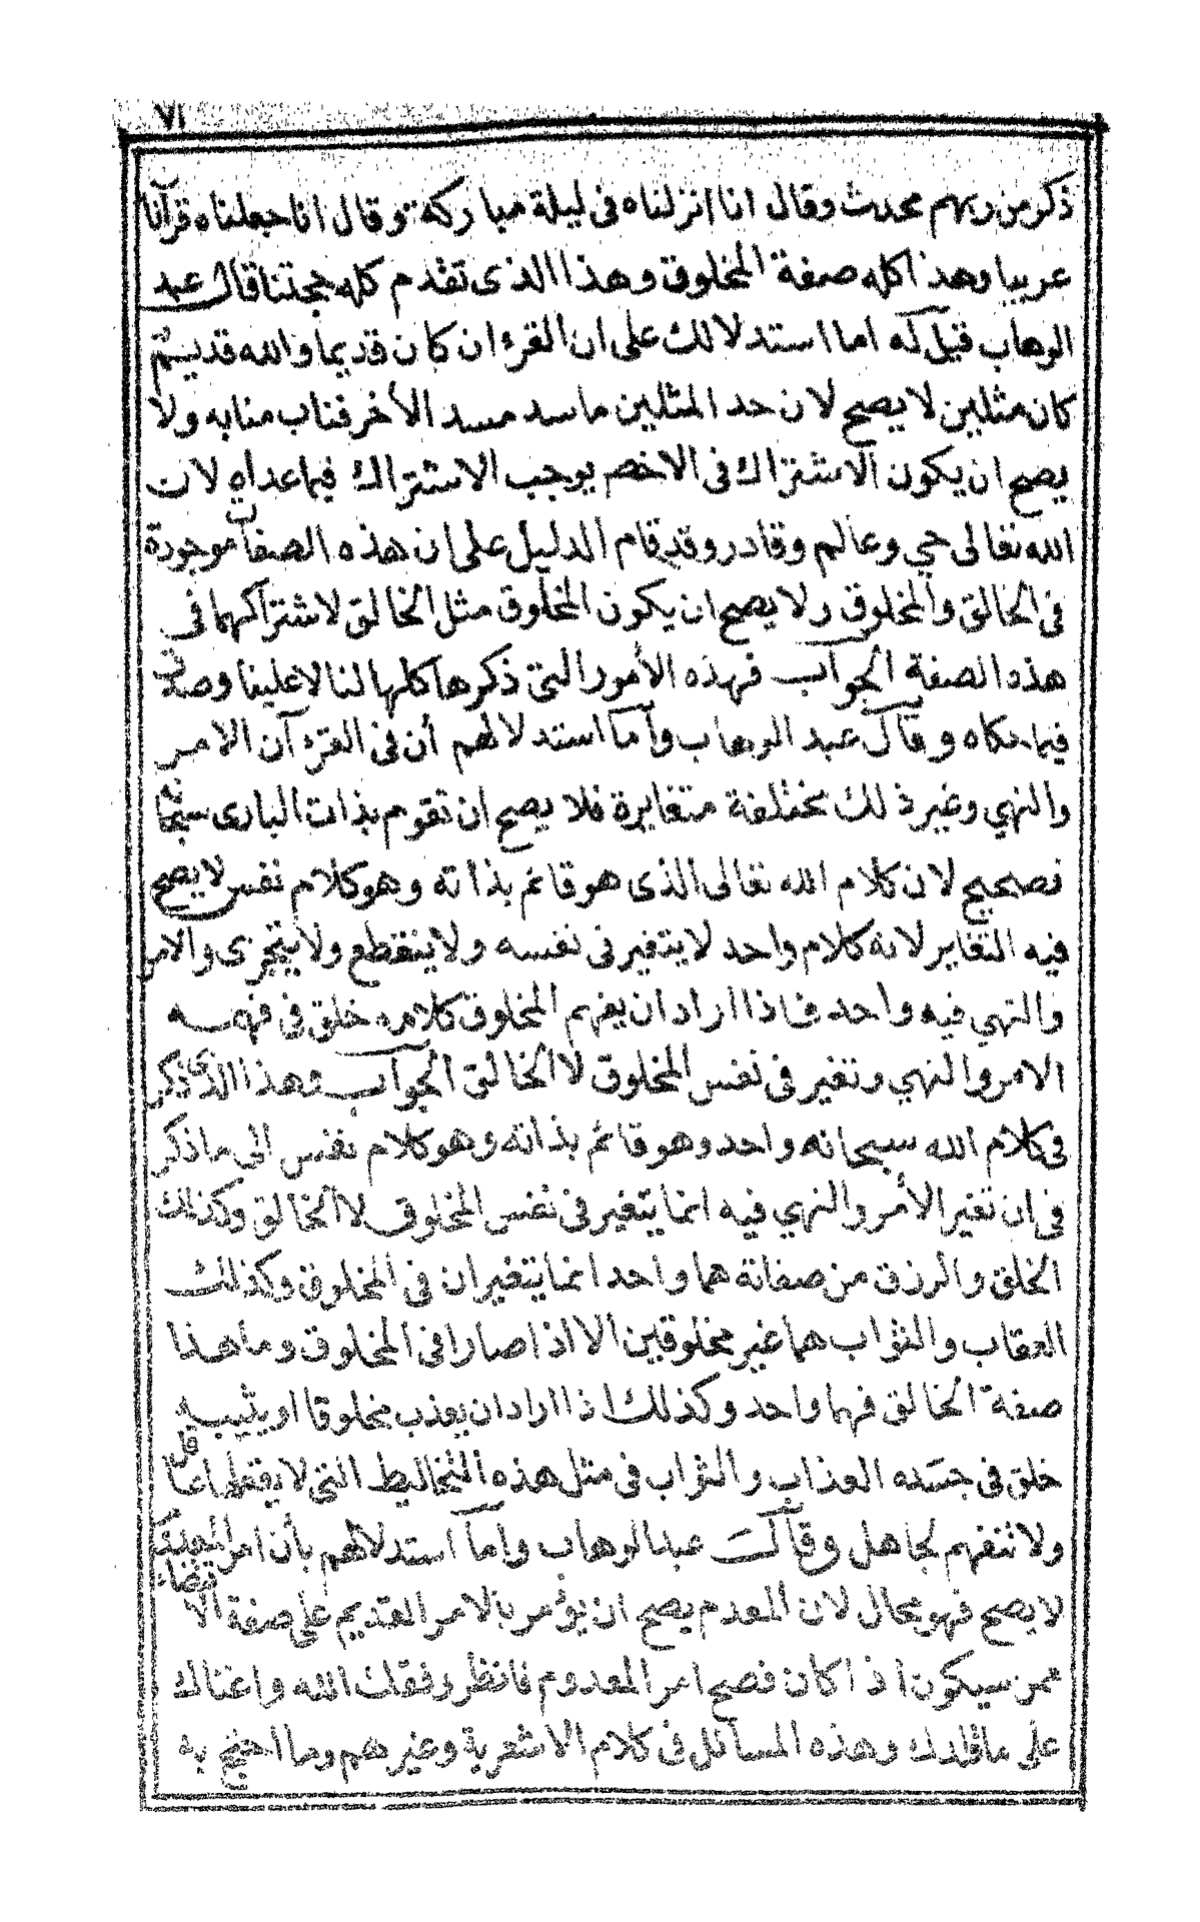 ٧١
ذكر من ربهم محدث وقال انا انزلناه فى ليلة مباركة وقال انا جعلناه قرآنا
عربيا وهذا كله صفة المخلوق وهذا الذى تقدم كله حجتنا قال عبد
الوهاب قيل له اما استدلالك على ان القرءان كان قديما والله قديم
كان مثلين لا يصح لان حد المثلين ما سد مسد الأخر فناب منابه ولا
يصح ان يكون الاشتراك فى الاخص يوجب الاشتراك فيما عداه لان
الله تعالى حي وعالم وقادر وقد قام الدليل على ان هذه الصفات موجودة
فى الخالق والمخلوق ولا يصح ان يكون المخلوق مثل الخالق لاشتراكهما فى
هذه الصفة الجواب فهذه الأمور التى ذكرها كلها لنا لا علينا وصدق
فيما حكاه وقال عبد الوهاب وأما استدلالهم أن فى القرءآن الامر
والنهي وغير ذلك مختلفة متغايرة فلا يصح ان تقوم بذات البارى سبحانه
فصحيح لان كلام الله تعالى الذى هو قائم بذاته وهو كلام نفس لا يصح
فيه التغاير لانه كلام واحد لا يتغير فى نفسه ولا ينقطع ولا يتجزى والامر
والنهي فيه واحد فاذا اراد ان يفهم المخلوق كلامه خلق فى فهمه
الامر والنهي وتغير فى نفس المخلوق لا الخالق الجواب وهذا الذى ذكر
فى كلام الله سبحانه واحد وهو قائم بذاته وهو كلام نفس الى ما ذكر
فى ان تغير الأمر والنهي فيه انما يتغير فى نفس المخلوق لا الخالق وكذلك
الخلق والرزق من صفاته هما واحد انما يتغيران فى المخلوق وكذلك
العقاب والثواب هما غير مخلوقين الا اذا صارا فى المخلوق وما هذا
صفة الخالق فهما واحد وكذلك اذا اراد ان يعذب مخلوقا او يثيبه
خلق فى جسده العذاب والثواب فى مثل هذه التخاليط التى لا يفعلها عاقل
ولا تنفهم لجاهل وقال عبد الوهاب واما استدلالهم بأن امر المعدوم
لا يصح فهو محال لان المعدم يصح ان يؤمر بالامر القديم على صفة الاقتضاء
ممن سيكون اذا كان فصح امر المعدوم فانظر وفقك الله واغناك
على ما قلدك وهذه المسائل فى كلام الاشعرية وغيرهم وما احتج به